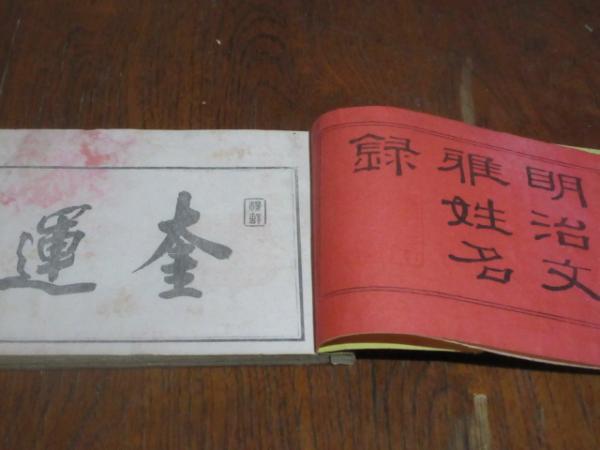 明治文
雅姓名
録
奎
運